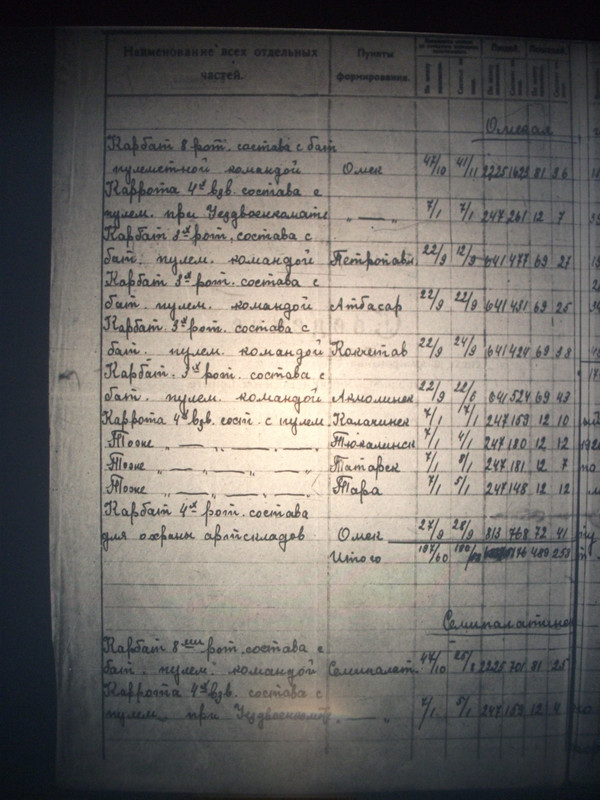 Наименование всех отдельных частей. Пункты формирования. Людей. Лошадей.
Омская
Карбат 8 рот. состава с бат.
пулеметной командой Омск 47/10 41/11 2225 1623 81 36
Каррота 4х взв. состава с
пулем. при Уездвоенкомате " — " 7/1 7/1 247 261 12 7
Карбат 3х рот. состава с
бат. пулем. командой Петропавл. 22/9 12/9 641 477 69 27
Карбат 3х рот. состава с
бат. пулем. командой Атбасар 22/9 22/9 641 431 69 25
Карбат 3х рот. состава с
бат. пулем. командой Кокчетав 22/9 24/9 641 424 69 38
Карбат. 3х рот. состава с
бат. пулем. командой Акмолинск 22/9 22/6 641 524 69 43
Каррота 4х взв. сост. с пулем. Калачинск 7/1 17/1 247 159 12 10
Тоже " — " — " — " — Тюкалинск 7/1 4/1 247 180 12 12
Тоже " — " — " — " — Татарск 7/1 8/1 247 181 12 7
Тоже " — " — " — " — Тара 7/1 5/1 247 148 12 12
Карбат 4х рот. состава
для охраны артскладов Омск 27/9 28/9 813 768 72 41
Итого
Семипалатинск
Карбат 8ми рот. состава с
бат. пулем. командой Семипалат. 47/10 2225 701 81 25
Каррота 4х взв. состава с
пулем. при Уездвоенкомте " — " 7/1 5/1 247 159 12 4